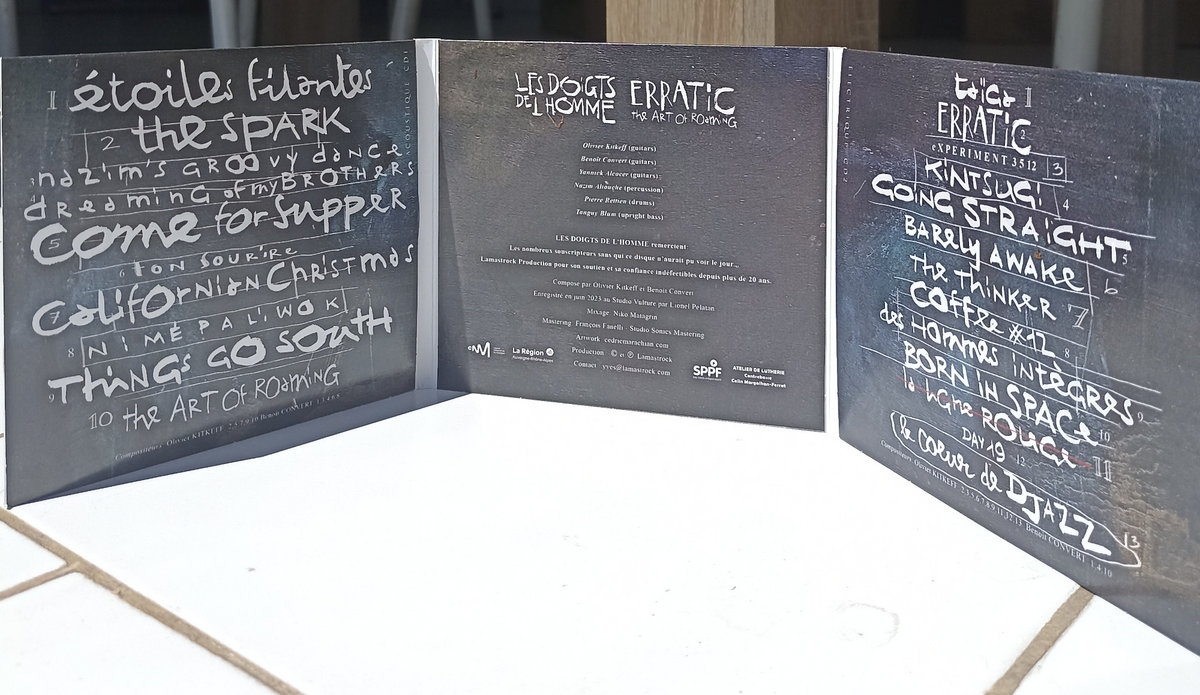 1 étoiles filantes
2 the SPARK
3 nazim's GROOVY dance
4 dreaming of my BROTHERS
5 Come for supper
6 TON SOURIRE
7 CaliFORNian CHRISTmas
8 NIMÉPALIWOK
9 THINGS GO SOUTH
10 the ART OF ROAMING
Compositeurs: Olivier KITKEFF 2.5.7.9.10 Benoit CONVERT 1.3.4.6.8
ACOUSTIQUE CD1
LES DOIGTS DE L'HOMME
ERRATIC
the ART OF ROAMING
Olivier Kitkeff (guitars)
Benoit Convert (guitars)
Yannick Alcocer (guitars)
Nazim Aliouche (percussion)
Pierre Rettien (drums)
Tanguy Blum (upright bass)
LES DOIGTS DE L'HOMME remercient:
Les nombreux souscripteurs sans qui ce disque n'aurait pu voir le jour...
Lamastrock Production pour son soutien et sa confiance indéfectibles depuis plus de 20 ans.
Composé par Olivier Kitkeff et Benoit Convert
Enregistré en juin 2023 au Studio Vulture par Lionel Pelatan
Mixage Niko Matagrin
Mastering François Fanelli - Studio Sonics Mastering
Artwork cedricmarachian.com
Production © et ℗ Lamastrock
Contact yves@lamastrock.com
CNM
La Région
Auvergne-Rhône-Alpes
SPPF
ATELIER DE LUTHERIE
Contrebasse
Colin Margailhan-Ferrat
ELECTRIQUE CD2
taïga 1
ERRATIC 2
eXPERIMENT 3512 3
KINTSUGI 4
GOING STRAIGHT 5
BARELY AWAKE 6
the THINKER 7
COFFEE #12 8
des HOMMES intÈGRES 9
BORN IN SPACE 10
la ligne ROUGE 11
DAY 19 12
le coeur de DJAZZ 13
Compositeurs: Olivier KITKEFF 2.3.5.6.7.8.9.11.12.13 Benoit CONVERT 1.4.10